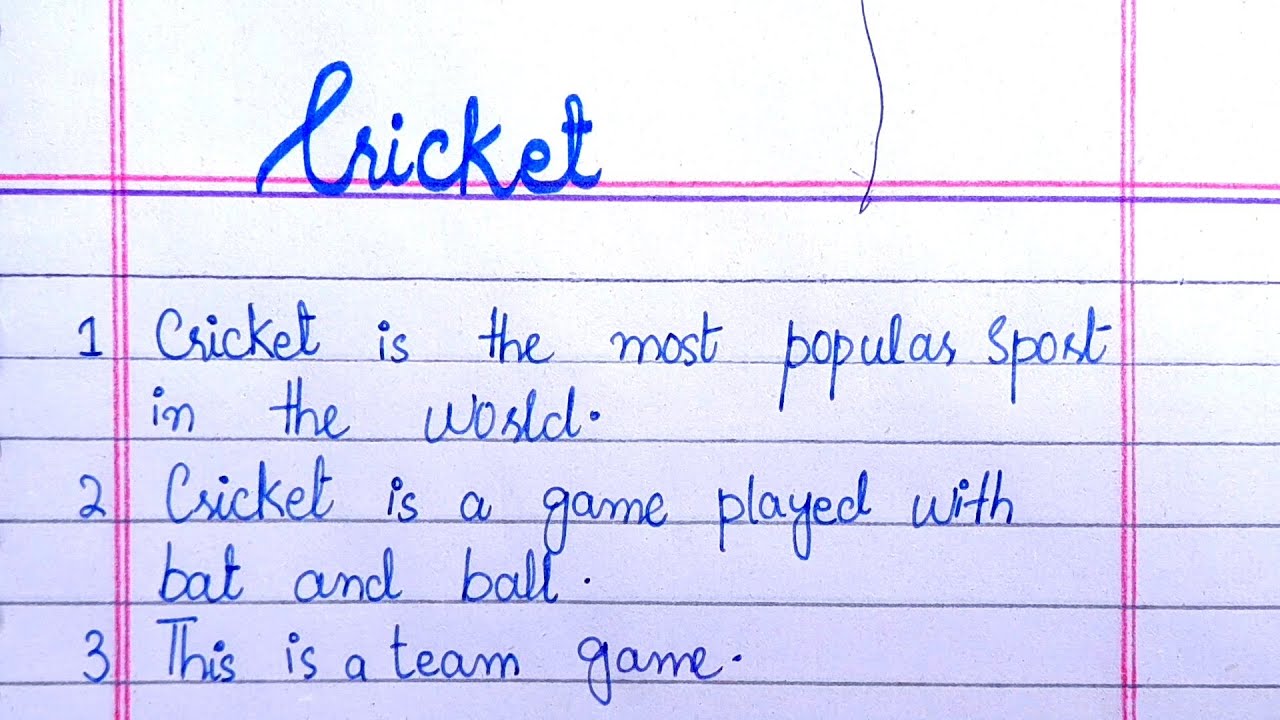 Cricket
1 Cricket is the most popular Sport
in the world.
2 Cricket is a game played with
bat and ball.
3 This is a team game.